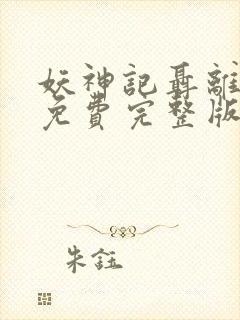 妖神記聶離
免費完整版
朱鈺